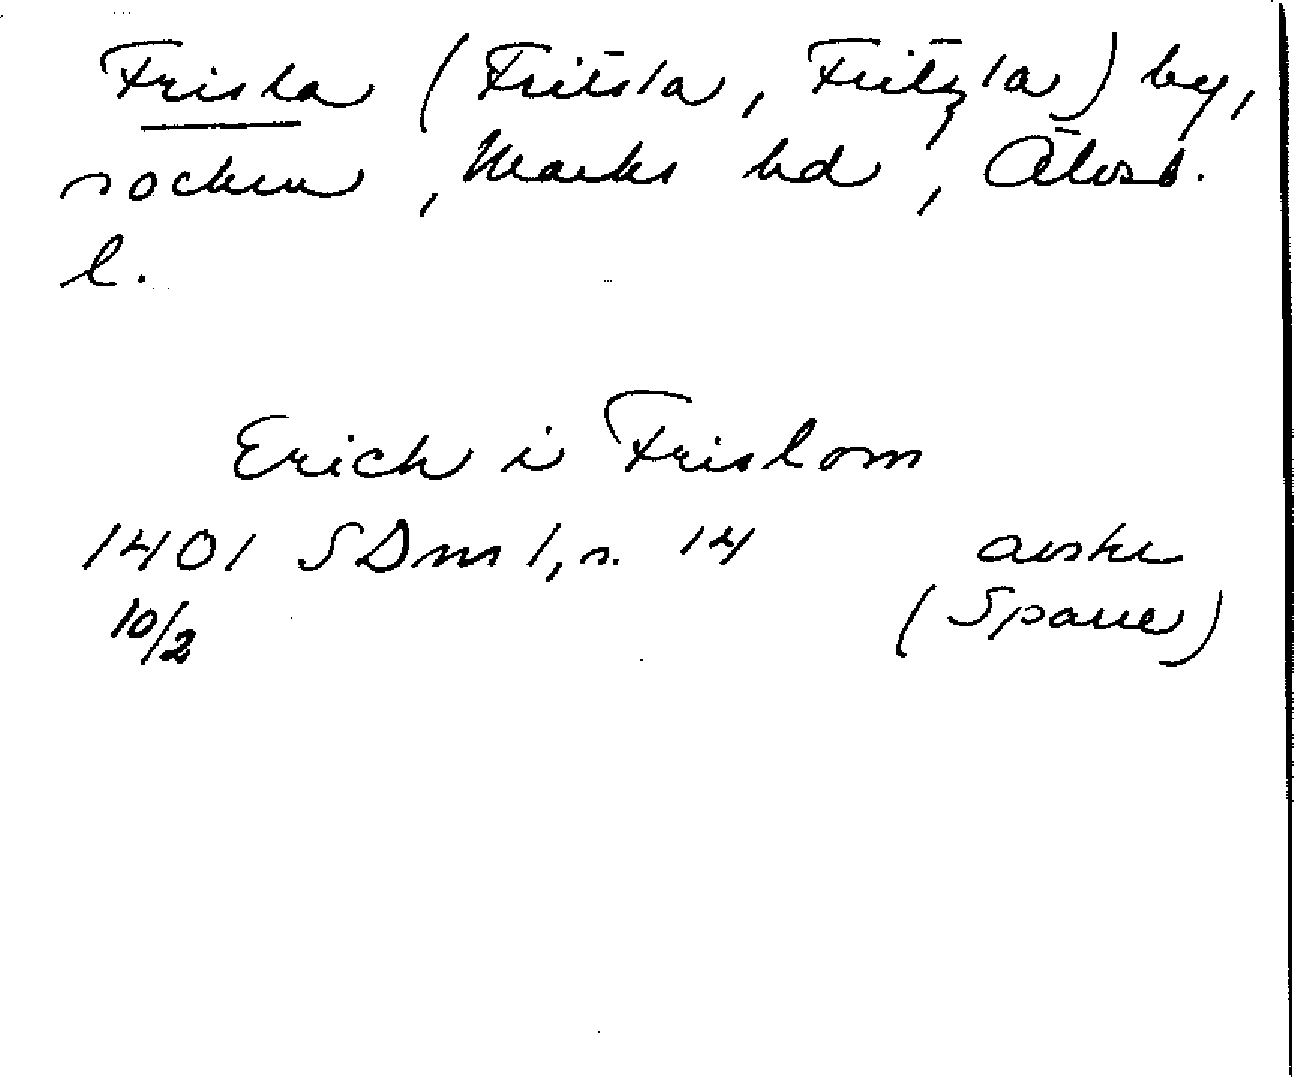 Frisla (Fritsla, Fritzla) by,
socken, Marks hd, Älvsb.
l.
Erich i Frislom
1401 SDns 1, s. 14 avskr
10/2 (Sparre)